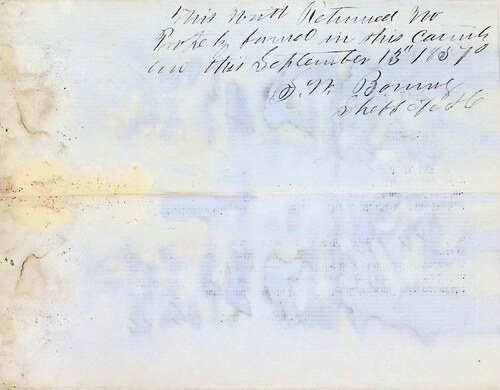 This Writt Returned No
Property found in this County
on this September 13th 1857
S. W.
Sheff